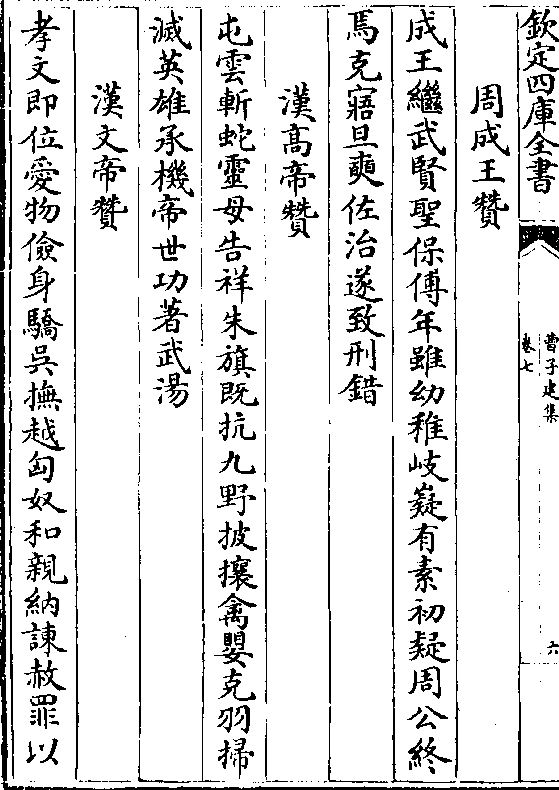 欽定四庫全書
曹子建集
卷七
六
周成王贊
成王繼武賢聖保傅年雖幼稚岐嶷有素初疑周公終
焉克寤旦奭佐治遂致刑錯
漢高帝贊
屯雲斬蛇靈母告祥朱旗既抗九野披攘禽嬰克羽掃
滅英雄承機帝世功著武湯
漢文帝贊
孝文即位愛物儉身驕吳撫越匈奴和親納諫赦罪以